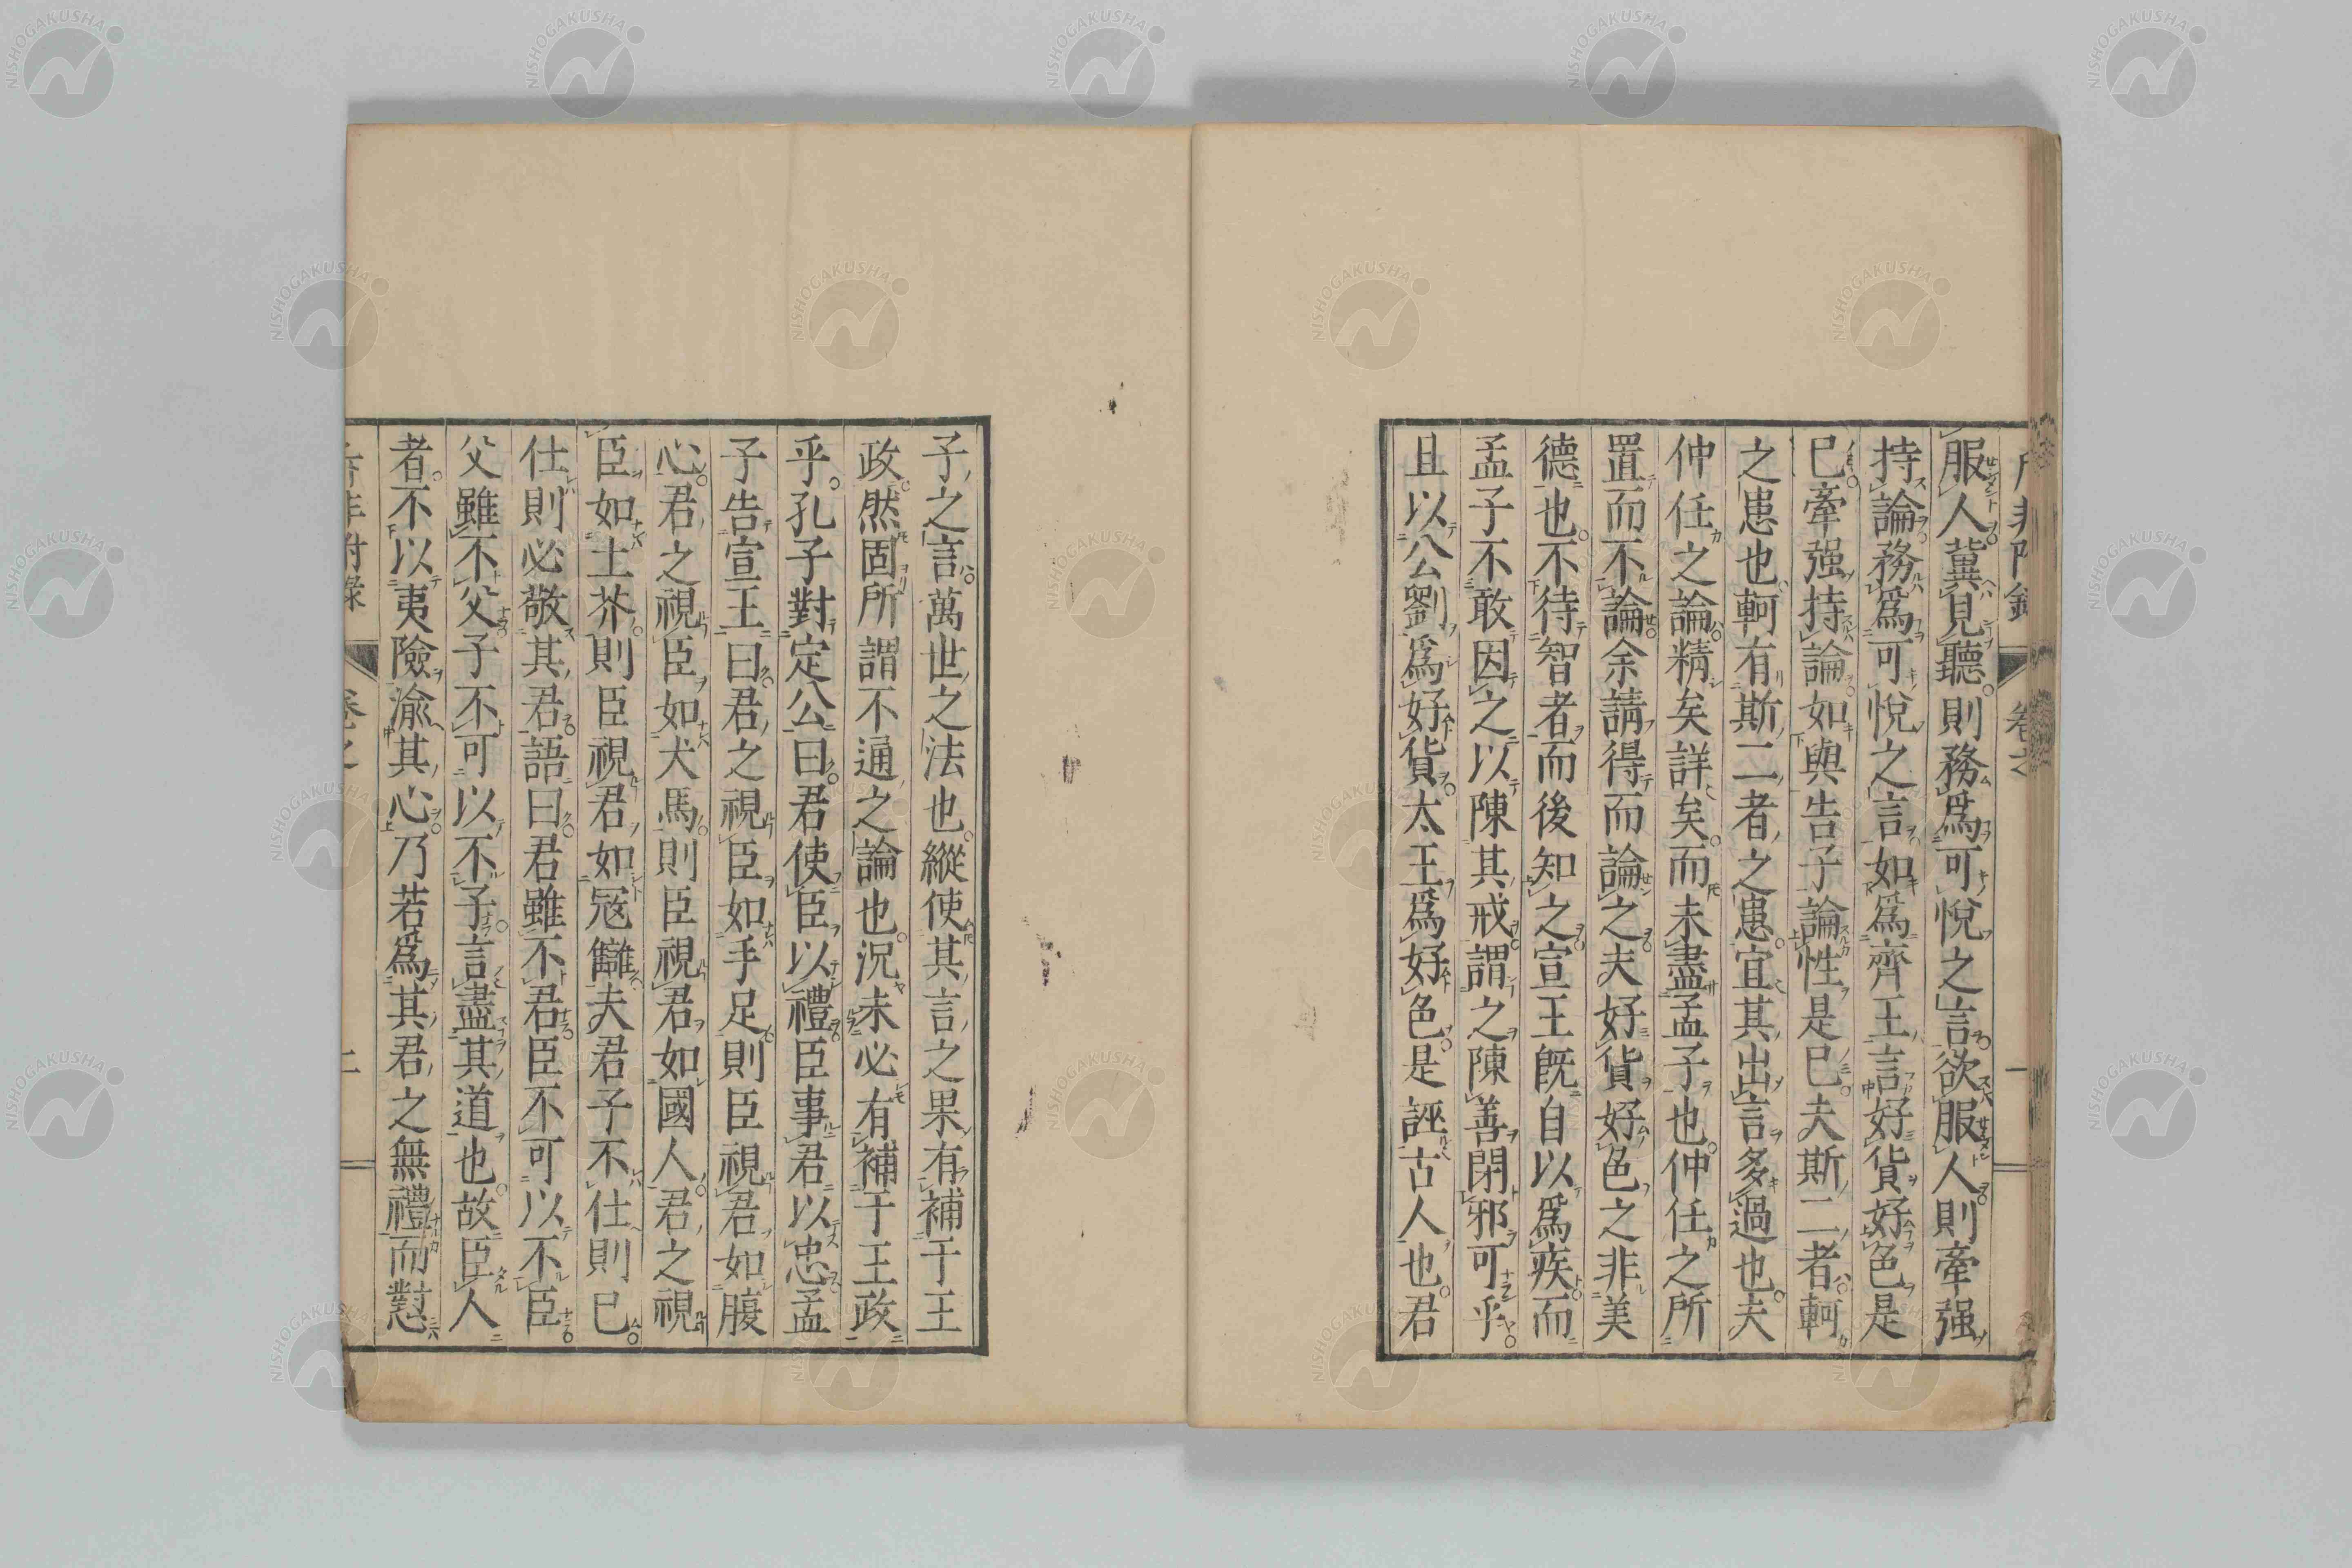 服人冀見聽則務爲可悅之言欲服人則牽强
持論務爲可悅之言如爲齊王言好貨好色是
已牽强持論如與告子論性是已夫斯二者軻
之患也軻有斯二者之患宜其出言多過也夫
仲任之論精矣詳矣而未盡孟子也仲任之所
置而不論余請得而論之夫好貨好色之非美
德也不待智者而後知之宣王既自以爲疾而
孟子不敢因之以陳其戒謂之陳善閉邪可乎
且以公劉爲好貨太王爲好色是誣古人也君
子之言萬世之法也縱使其言之果有補于王
政然固所謂不通之論也況未必有補于王政
乎孔子對定公曰君使臣以禮臣事君以忠孟
子告宣王曰君之視臣如手足則臣視君如腹
心君之視臣如犬馬則臣視君如國人君之視
臣如土芥則臣視君如寇讎夫君子不仕則已
仕則必敬其君語曰君雖不君臣不可以不臣
父雖不父子不可以不子言盡其道也故臣人
者不以夷險渝其心乃若爲其君之無禮而懟
附錄 卷之 二
NISHOGAKUSHA